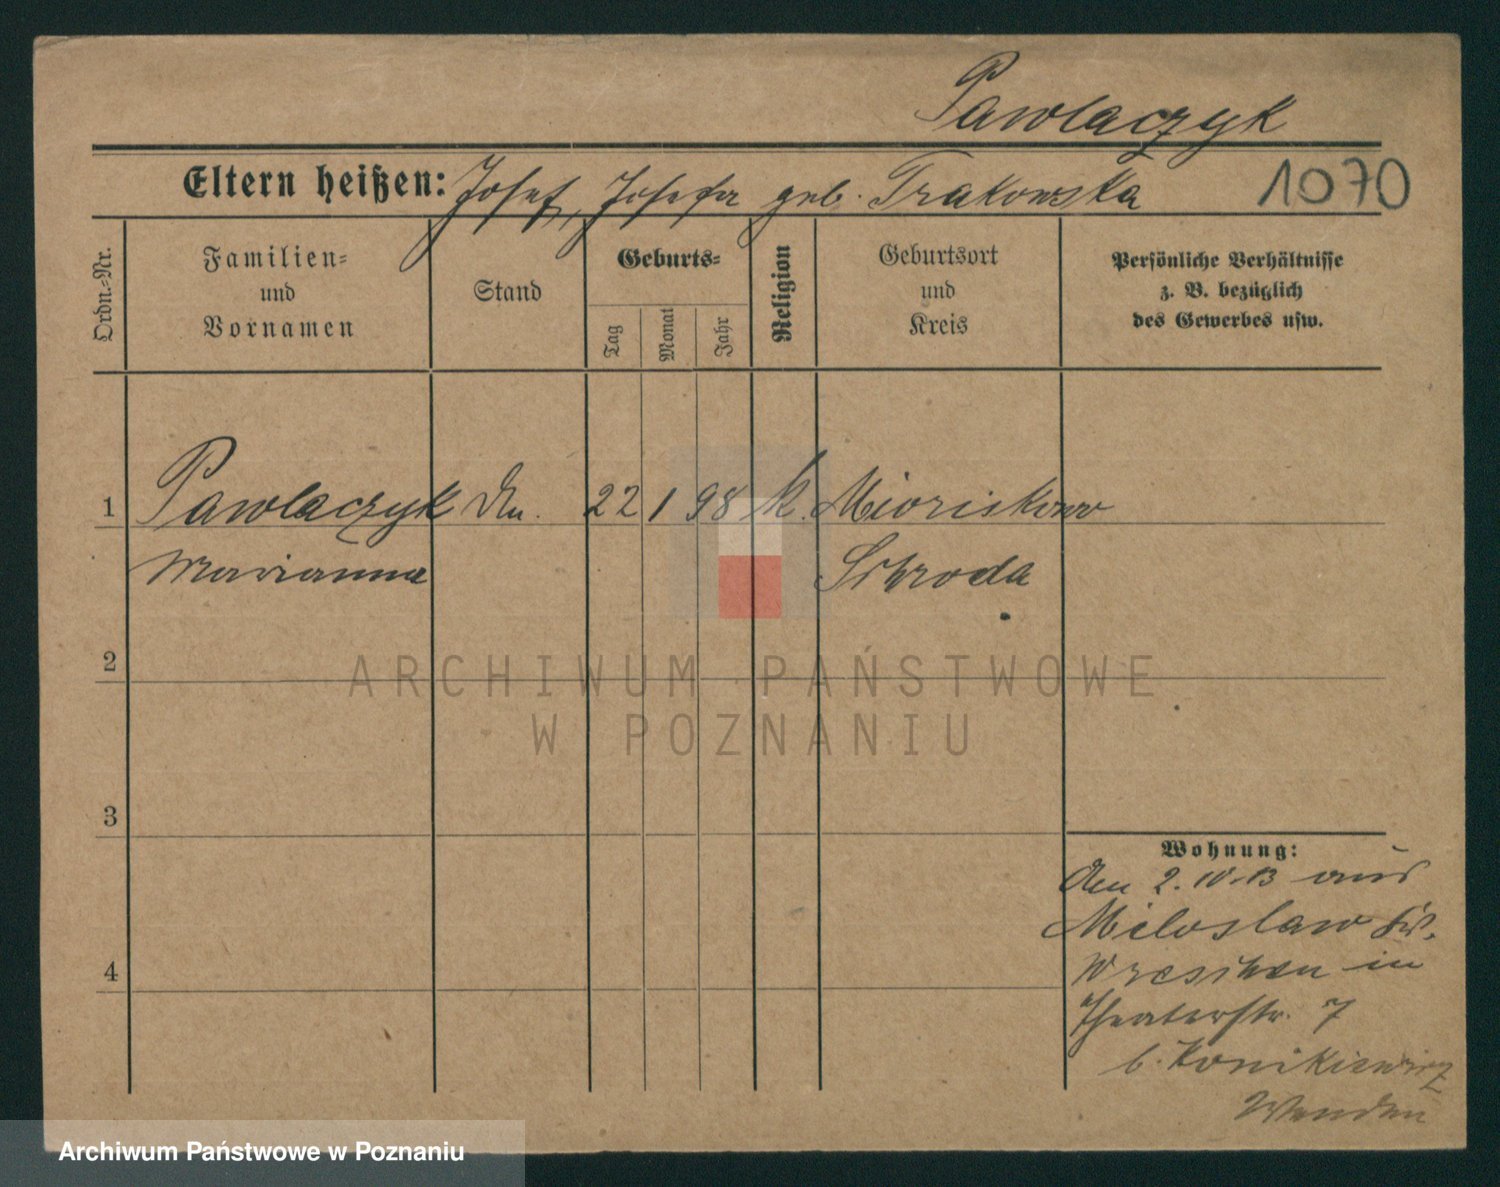 Pawlaczyk
Eltern heißen: Josef, Josefa geb. Trakowska
1070
Ordn.-Nr.
Familien-
und
Vornamen
Stand
Geburts-
Tag
Monat
Jahr
Religion
Geburtsort
und
Kreis
Persönliche Verhältnisse
z. B. bezüglich
des Gewerbes usw.
1 Pawlaczyk 22 1 98 k.
Marianna Schroda
2
3
4
Wohnung:
den 2. IV. 13 aus
Miloslaw Kr.
Wreschen in
Theaterstr. 7
b. Konikiewicz
Wenden
ARCHIWUM PAŃSTWOWE
W POZNANIU
Archiwum Państwowe w Poznaniu